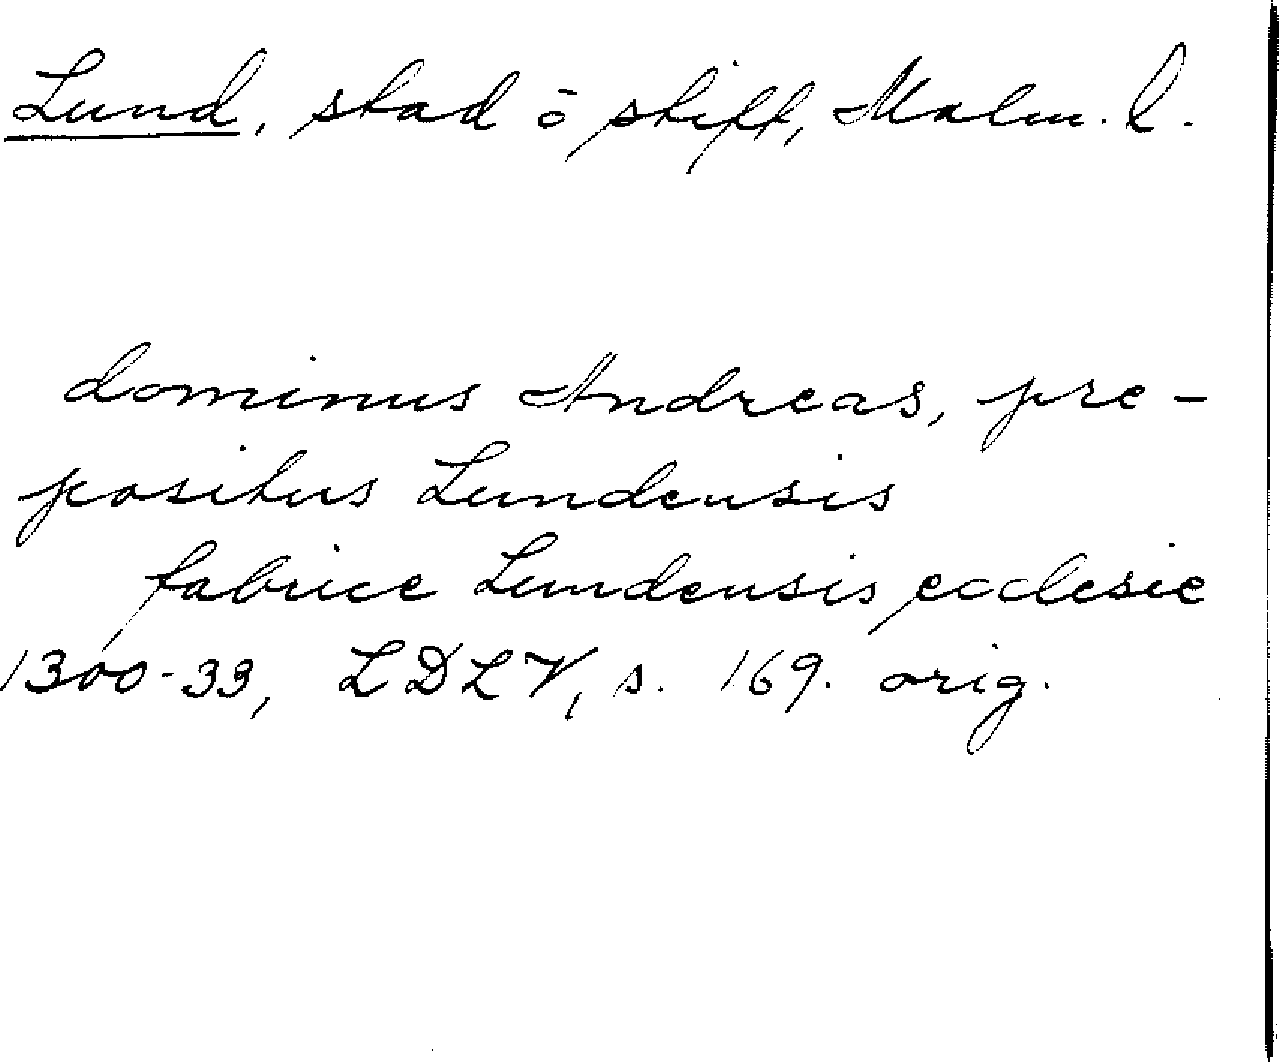 Lund, stad ō stift, Malm. l.
dominus Andreas, pre-
positus Lundensis
fabrice Lundensis ecclesie
1300-33, LDLV, s. 169. orig.